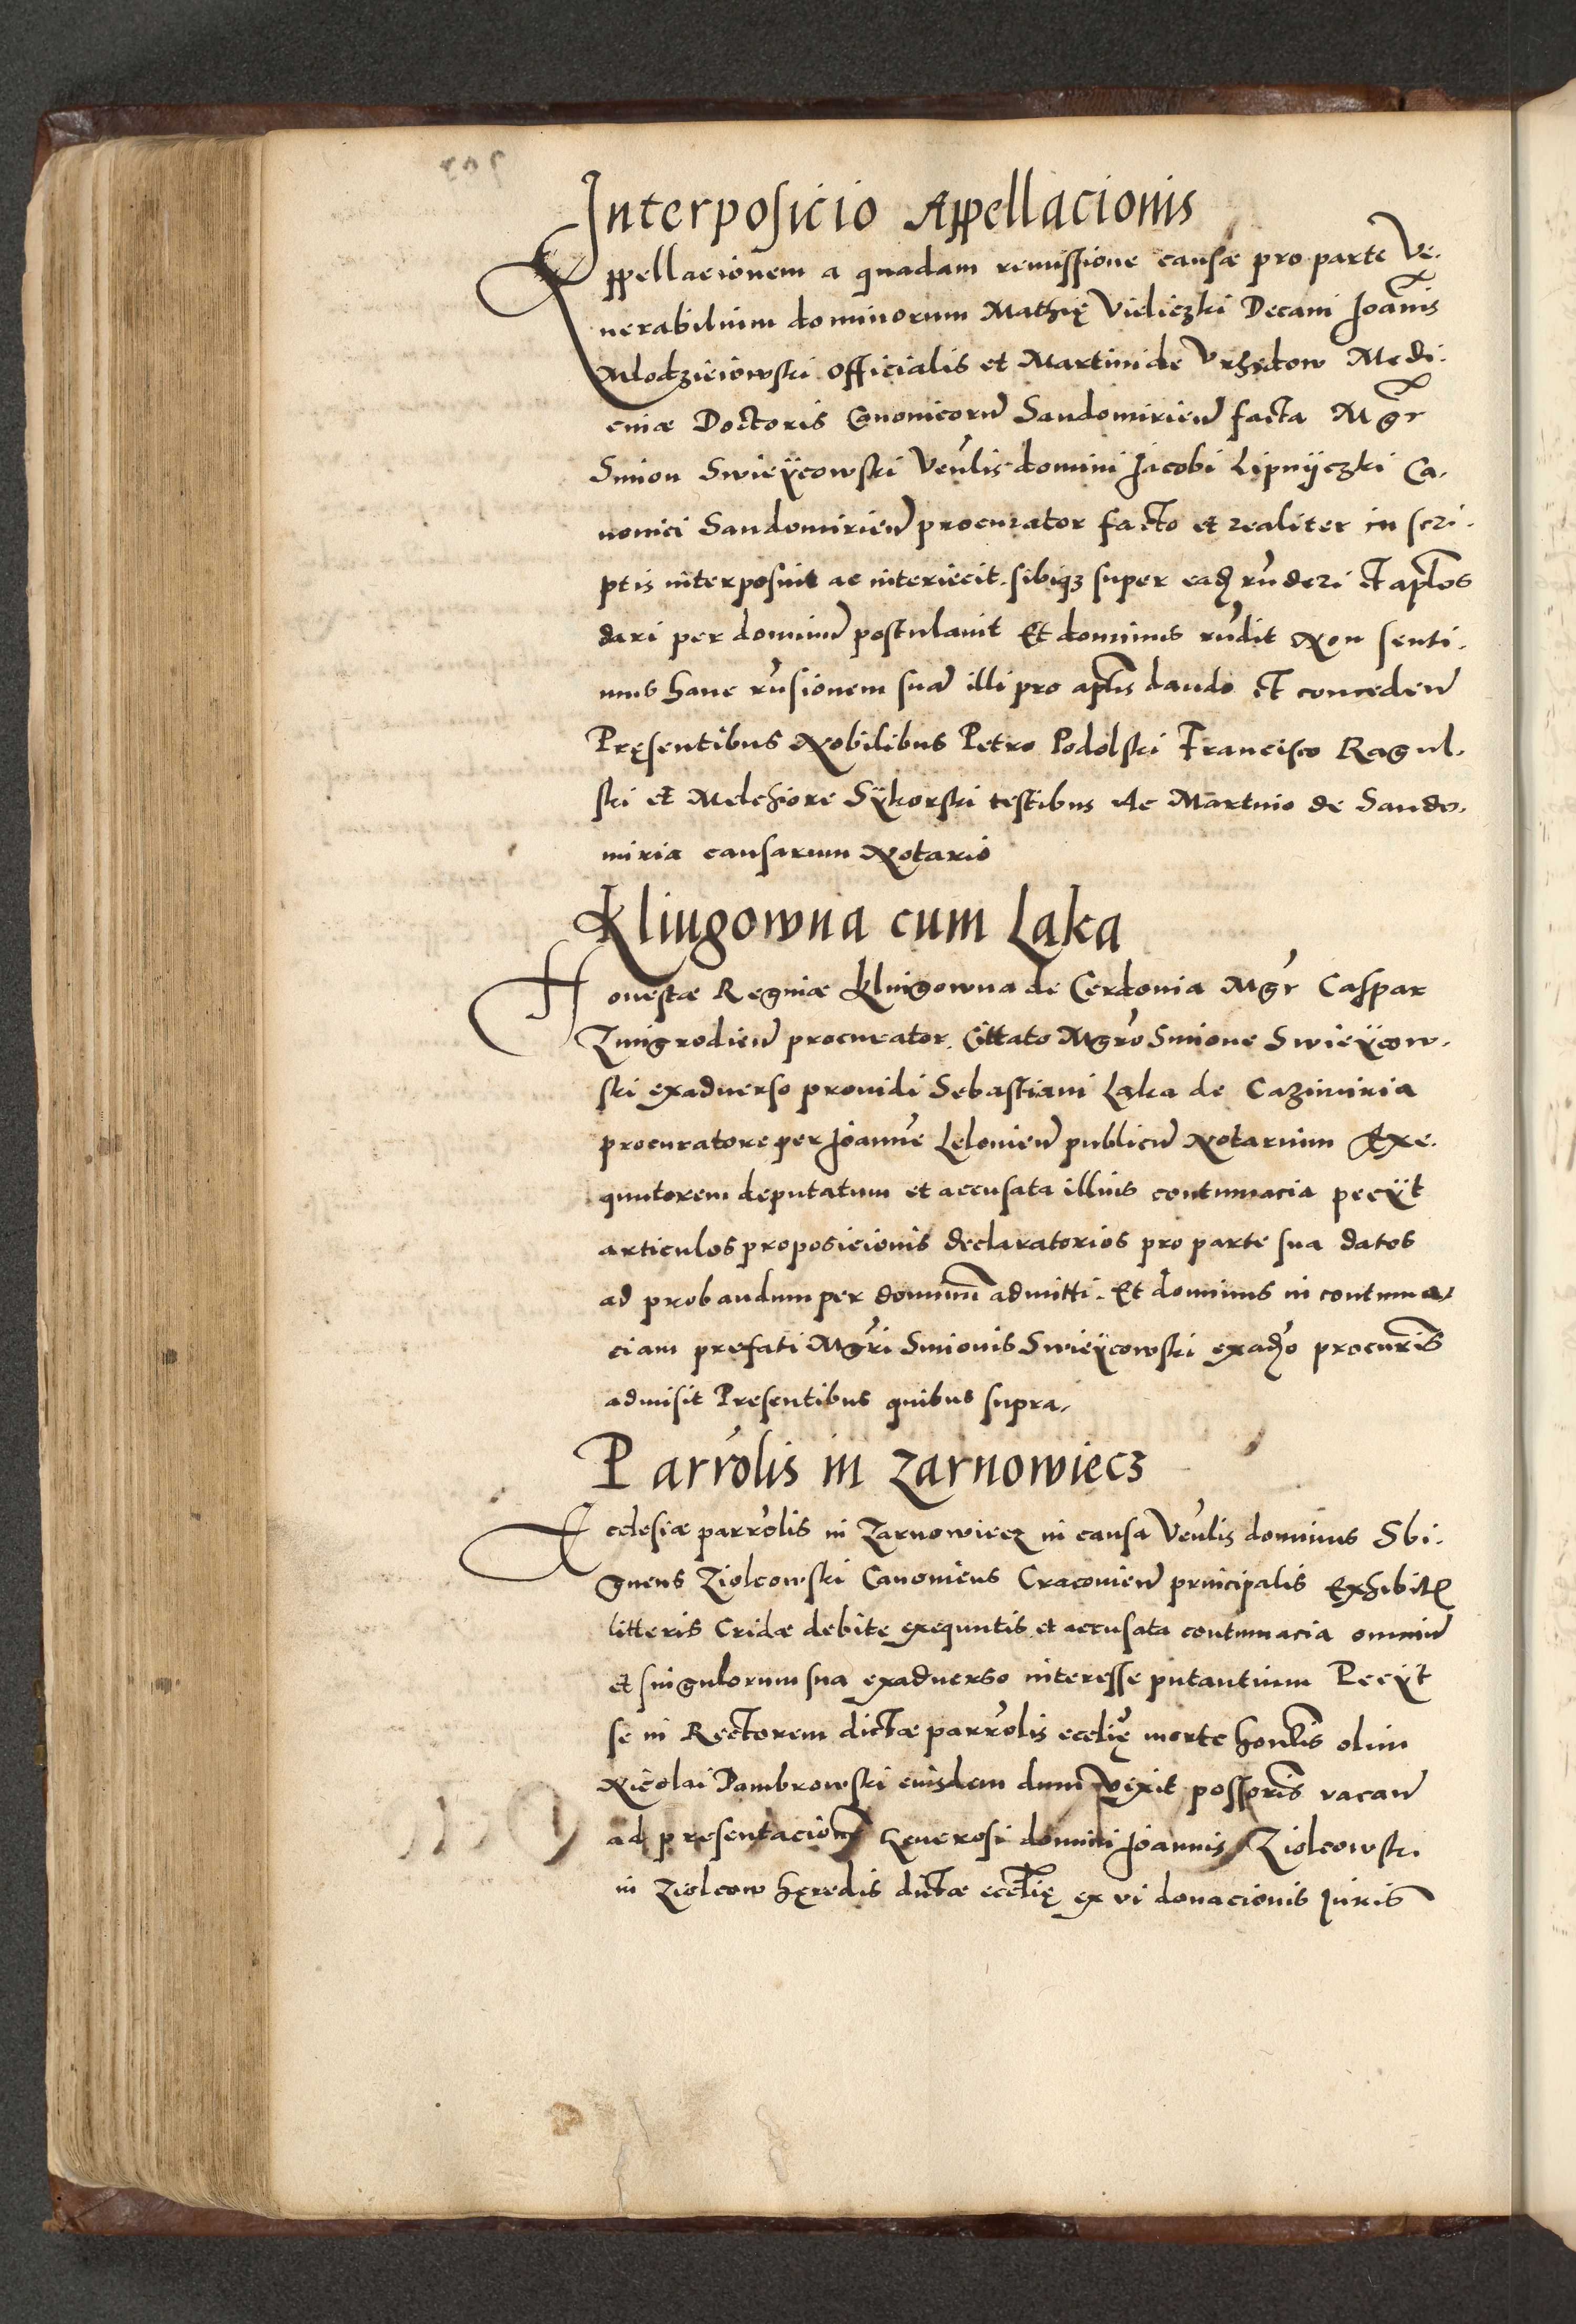 Interposicio Appellacionis
Appellacionem a quadam remissione causæ pro parte Ve-
nerabilium dominorum Mathię Vieliczki Decani Joannis
Mlodzieiowski officialis et Martini de Vrzędow Medi-
cinæ Doctoris Canonicoru͂ Sandomirien͂ facta Mgr
Simon Swieÿcowski Ven͂lis domini Jacobi Lipnÿczki Ca-
nonici Sandomirien͂ procurator facto et realiter in scri-
ptis interposuit ac interiecit. sibiqꝫ super eaꝺ r͂nderi et ap͂los
dari per dominu͂ postulavit Et dominus r͂ndit Non senti-
mus hanc r͂nsionem sua͂ illi pro ap͂lis dando et conceden͂
Pręsentibus Nobilibus Petro Podolski Francisco Ragul-
ski et Melchiore Sÿkorski testibus Ac Martino de Sando-
miria causarum Notario
Klingowna cum Laka
Honestæ Reginæ Klingowna de Cerdonia Mgr͂ Caspar
Zmigrodien͂ procurator. Cittato Mgro͂ Simone Swieÿcow-
ski exadverso providi Sebastiani Laka de Cazimiria
procuratore per Joanne͂ Lelovien͂ publicu͂ Notarium Exe-
quutorem deputatum et accusata illius contumacia peeÿt
articulos proposicionis declaratorios pro parte sua datos
ad probandum per dominu͂ admitti. Et dominus in contuma-
ciam prefati Mgr͂i Simonis Swieÿcowski exadꝰo procur͂is
admisit Presentibus quibus supra,
Parro͂lis in Zarnowiecz
Ecclesiæ parro͂lis in Zarnowiecz in causa Ven͂lis dominus Sbi-
gneus Ziolcowski Canonicus Cracovien͂ principalis Exhibitꝭ
litteris Cridæ debite exequutis et accusata contumacia omniu͂
et singulorum sua exadverso interesse putantium Peeÿt
se in Rectorem dictæ parro͂lis eccli͂ę morte hon͂lis olim
Nicolai Dambrowski eiusdem dum vixit possor͂is vacan͂
ad presentacione͂ Generosi domini Joannis Ziolcowski
in Ziolcow hęredis dictæ eccli͂ę ex vi donacionis Iuris